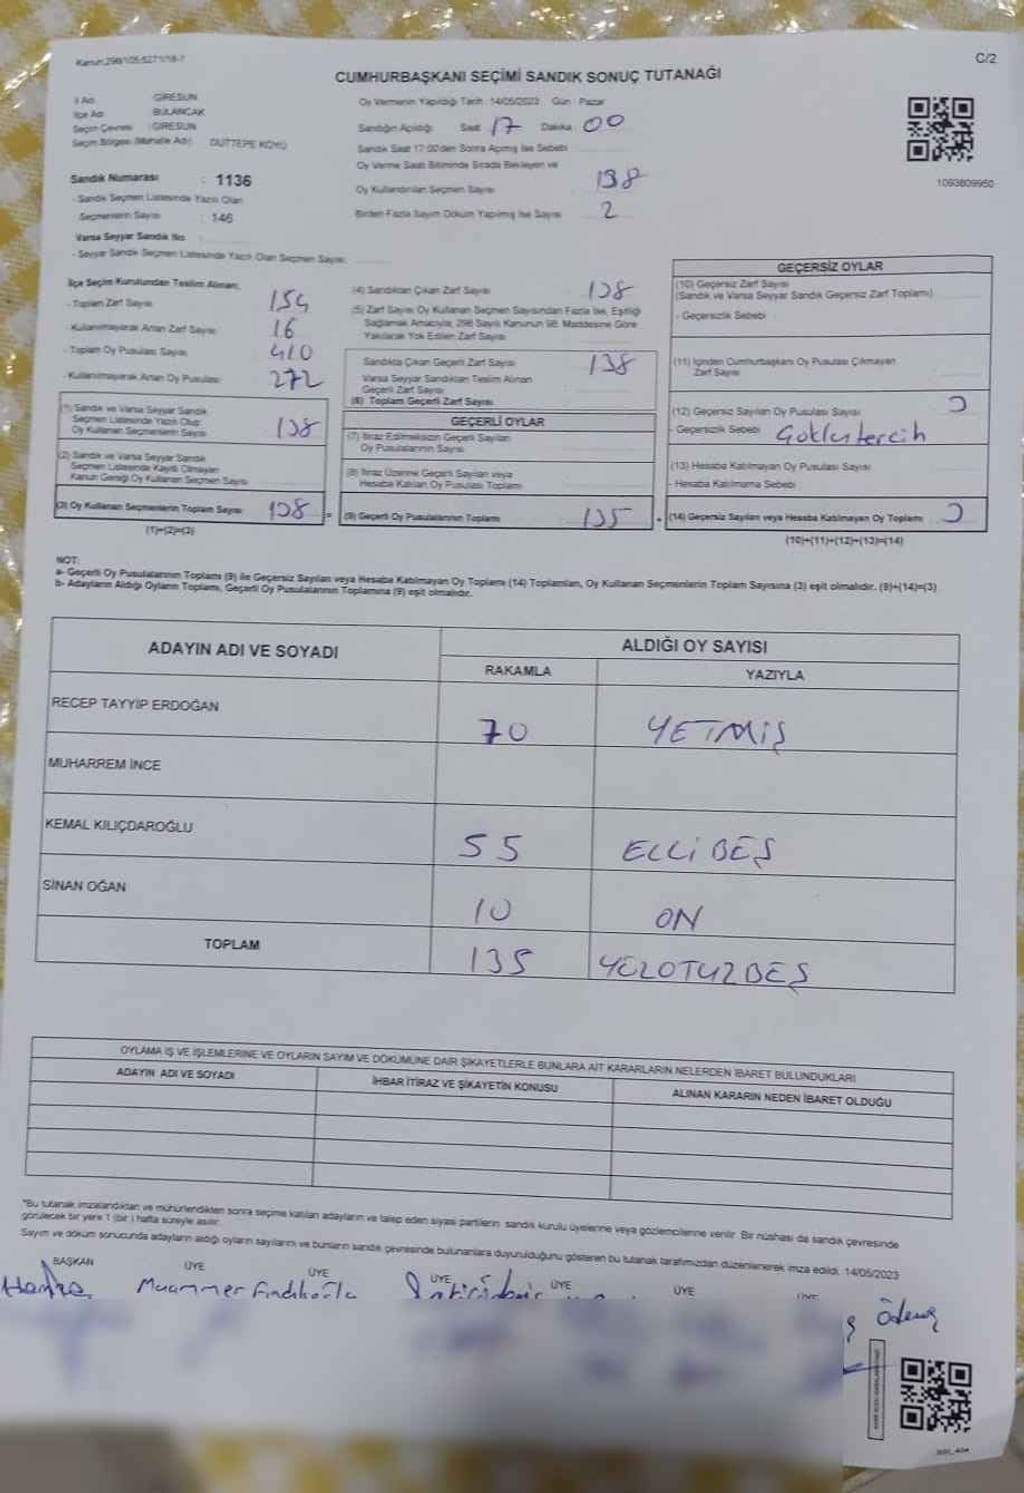 Kanun:298/105-5271/18-7
C/2
CUMHURBAŞKANI SEÇİMİ SANDIK SONUÇ TUTANAĞI
İl Adı GİRESUN
İlçe Adı BULANCAK
Seçim Çevresi : GİRESUN
Seçim Bölgesi (Mahalle Adı) DUTTEPE KÖYÜ
Sandık Numarası : 1136
- Sandık Seçmen Listesinde Yazılı Olan
Seçmenlerin Sayısı : 146
Varsa Seyyar Sandık No
- Seyyar Sandık Seçmen Listesinde Yazılı Olan Seçmen Sayısı
Oy Vermenin Yapıldığı Tarih : 14/05/2023 Gün : Pazar
Sandığın Açıldığı Saat 17 Dakika 00
Sandık Saat 17:00'den Sonra Açılmış İse Sebebi
Oy Verme Saati Bitiminde Sırada Bekleyen ve
Oy Kullandırılan Seçmen Sayısı 138
Birden Fazla Sayım Döküm Yapılmış İse Sayısı 2
1093809950
İlçe Seçim Kurulundan Teslim Alınan;
- Toplam Zarf Sayısı 154
- Kullanılmayarak Artan Zarf Sayısı 16
- Toplam Oy Pusulası Sayısı 410
- Kullanılmayarak Artan Oy Pusulası 272
(1) Sandık ve Varsa Seyyar Sandık
Seçmen Listesinde Yazılı Olup
Oy Kullanan Seçmenlerin Sayısı 138
(2) Sandık ve Varsa Seyyar Sandık
Seçmen Listesinde Kayıtlı Olmayan
Kanun Gereği Oy Kullanan Seçmen Sayısı
(3) Oy Kullanan Seçmenlerin Toplam Sayısı 138 =
(1)+(2)=(3)
(4) Sandıktan Çıkan Zarf Sayısı 138
(5) Zarf Sayısı Oy Kullanan Seçmen Sayısından Fazla İse, Eşitliği
Sağlamak Amacıyla, 298 Sayılı Kanunun 98. Maddesine Göre
Yakılarak Yok Edilen Zarf Sayısı
Sandıkta Çıkan Geçerli Zarf Sayısı 138
Varsa Seyyar Sandıktan Teslim Alınan
Geçerli Zarf Sayısı
(6) Toplam Geçerli Zarf Sayısı
GEÇERLİ OYLAR
(7) İtiraz Edilmeksizin Geçerli Sayılan
Oy Pusulalarının Sayısı
(8) İtiraz Üzerine Geçerli Sayılan veya
Hesaba Katılan Oy Pusulası Toplamı
(9) Geçerli Oy Pusulalarının Toplamı 135 +
GEÇERSİZ OYLAR
(10) Geçersiz Zarf Sayısı
(Sandık ve Varsa Seyyar Sandık Geçersiz Zarf Toplamı)
- Geçersizlik Sebebi
(11) İçinden Cumhurbaşkanı Oy Pusulası Çıkmayan
Zarf Sayısı
(12) Geçersiz Sayılan Oy Pusulası Sayısı 3
- Geçersizlik Sebebi
(13) Hesaba Katılmayan Oy Pusulası Sayısı
- Hesaba Katılmama Sebebi
(14) Geçersiz Sayılan veya Hesaba Katılmayan Oy Toplamı 3
(10)+(11)+(12)+(13)=(14)
NOT:
a- Geçerli Oy Pusulalarının Toplamı (9) ile Geçersiz Sayılan veya Hesaba Katılmayan Oy Toplamı (14) Toplamları, Oy Kullanan Seçmenlerin Toplam Sayısına (3) eşit olmalıdır. (9)+(14)=(3)
b- Adayların Aldığı Oyların Toplamı, Geçerli Oy Pusulalarının Toplamına (9) eşit olmalıdır.
ADAYIN ADI VE SOYADI ALDIĞI OY SAYISI
RAKAMLA YAZIYLA
RECEP TAYYİP ERDOĞAN 70 YETMİŞ
MUHARREM İNCE
KEMAL KILIÇDAROĞLU 55 ELLİ BEŞ
SİNAN OĞAN 10 ON
TOPLAM 135 YÜZOTUZBEŞ
OYLAMA İŞ VE İŞLEMLERİNE VE OYLARIN SAYIM VE DÖKÜMÜNE DAİR ŞİKAYETLERLE BUNLARA AİT KARARLARIN NELERDEN İBARET BULUNDUKLARI
ADAYIN ADI VE SOYADI İHBAR İTİRAZ VE ŞİKAYETİN KONUSU ALINAN KARARIN NEDEN İBARET OLDUĞU
"Bu tutanak imzalandıktan ve mühürlendikten sonra seçime katılan adayların ve talep eden siyasi partilerin sandık kurulu üyelerine veya gözlemcilerine verilir. Bir nüshası da sandık çevresinde
görülecek bir yere 1 (bir) hafta süreyle asılır.
Sayım ve döküm sonucunda adayların aldığı oyların sayılarını ve bunların sandık çevresinde bulunanlara duyurulduğunu gösteren bu tutanak tarafımızdan düzenlenerek imza edildi. 14/05/2023
BAŞKAN ÜYE ÜYE ÜYE ÜYE ÜYE ÜYE
Muammer Fındıkoğlu